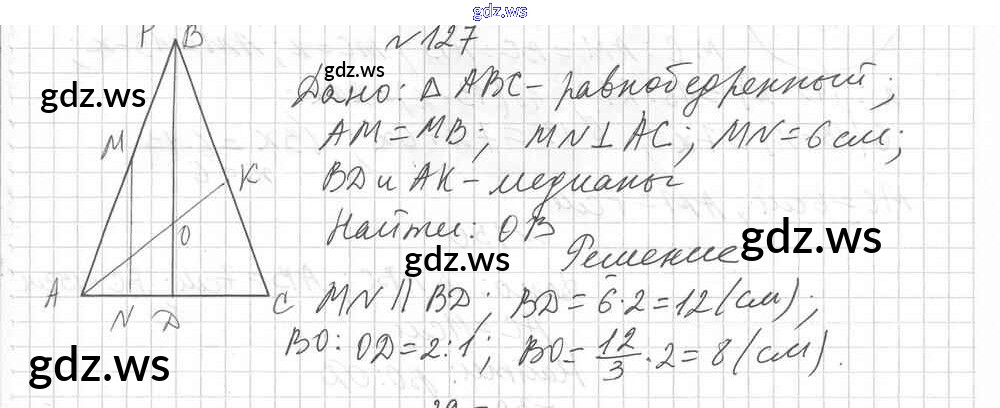 gdz.ws
№127
gdz.ws
Дано: Δ ABC - равнобедренный;
gdz.ws
AM = MB; MN ⊥ AC; MN = 6 см;
BD и AK - медианы
Найти: OB
gdz.ws
Решение
gdz.ws
MN || BD; BD = 6·2 = 12 (см);
BO : OD = 2:1; BO = 12/3 · 2 = 8 (см).
gdz.ws
B
M
K
O
A
C
N
D